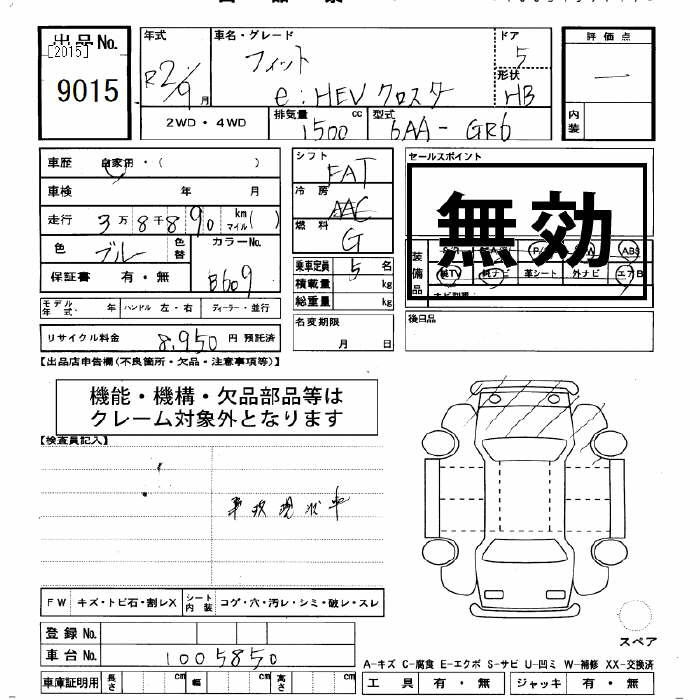 出品No.
[2015]
9015
年式
R2/9月
車名・グレード
フィット
e:HEV クロスター
ドア
5
形状
HB
評価点
—
内装
2WD・4WD
排気量
1500 cc
型式
6AA-GR6
車歴 自家用・( )
車検 年 月
走行 3万8千890 km マイル( )
色 ブルー 色替
カラーNo.
B609
保証書 有・無
シフト
FAT
冷房
AAC
燃料
G
乗車定員 5 名
積載量 kg
総重量 kg
セールスポイント
無効
装備品
ABS
純TV
純ナビ
革シート
外ナビ
エアB
モデル年式 年 ハンドル 左・右 ディーラー・並行
リサイクル料金 8,950 円 預託済
名変期限
月 日
後日品
【出品店申告欄(不良箇所・欠品・注意事項等)】
機能・機構・欠品部品等は
クレーム対象外となります
【検査員記入】
事故現状車
FW キズ・トビ石・割レX
シート内装 コゲ・穴・汚レ・シミ・破レ・スレ
登録No.
車台No. 1005850
車庫証明用 長さ cm 幅 cm 高さ cm
スペア
A-キズ C-腐食 E-エクボ S-サビ U-凹ミ W-補修 XX-交換済
工具 有・無 ジャッキ 有・無